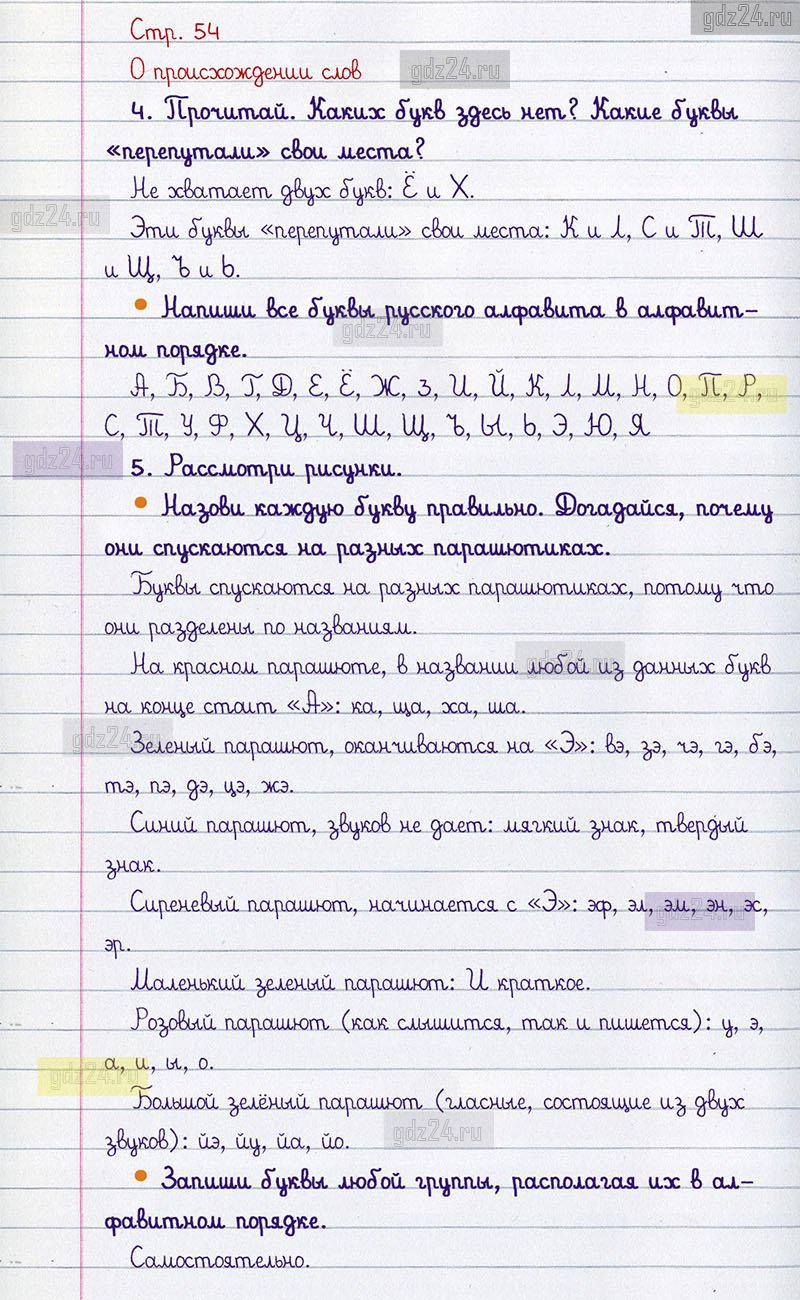 gdz24.ru
Стр. 54
О происхождении слов
gdz24.ru
4. Прочитай. Каких букв здесь нет? Какие буквы
«перепутали» свои места?
Не хватает двух букв: Ё и Х.
gdz24.ru
Эти буквы «перепутали» свои места: К и Л, С и Т, Ш
и Щ, Ъ и Ь.
• Напиши все буквы русского алфавита в алфавит-
gdz24.ru
ном порядке.
А, Б, В, Г, Д, Е, Ё, Ж, З, И, Й, К, Л, М, Н, О, П, Р,
gdz24.ru
С, Т, У, Ф, Х, Ц, Ч, Ш, Щ, Ъ, Ы, Ь, Э, Ю, Я
gdz24.ru
5. Рассмотри рисунки.
• Назови каждую букву правильно. Догадайся, почему
они спускаются на разных парашютиках.
Буквы спускаются на разных парашютиках, потому что
они разделены по названиям.
На красном парашюте, в названии любой из данных букв
gdz24.ru
на конце стоит «А»: ка, ща, ха, ша.
gdz24.ru
Зеленый парашют, оканчиваются на «Э»: вэ, зэ, чэ, гэ, бэ,
тэ, пэ, дэ, цэ, жэ.
Синий парашют, звуков не дает: мягкий знак, твердый
знак.
Сиреневый парашют, начинается с «Э»: эф, эл, эм, эн, эс,
gdz24.ru
эр.
Маленький зеленый парашют: И краткое.
Розовый парашют (как слышится, так и пишется): у, э,
а, и, ы, о.
gdz24.ru
Большой зелёный парашют (гласные, состоящие из двух
gdz24.ru
звуков): йэ, йу, йа, йо.
• Запиши буквы любой группы, располагая их в ал-
фавитном порядке.
Самостоятельно.